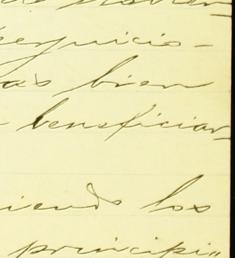 perjuicio-
as bien
beneficiar
iendo los
principi